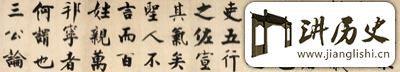 吏五行
之佐宣
其氣矣
聖人不
言而百
姓親萬
邦寧者
何謂也
三公論
讲历史
www.jianglishi.cn